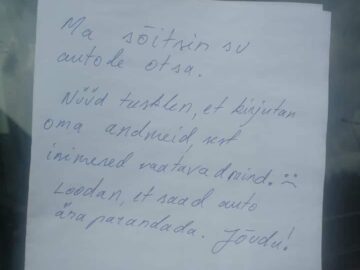 Ma sõitsin su
autole otsa.
Nüüd teesklen, et kirjutan
oma andmeid, sest
inimesed vaatavad mind. :(
Loodan, et saad auto
ära parandada. Jõudu!